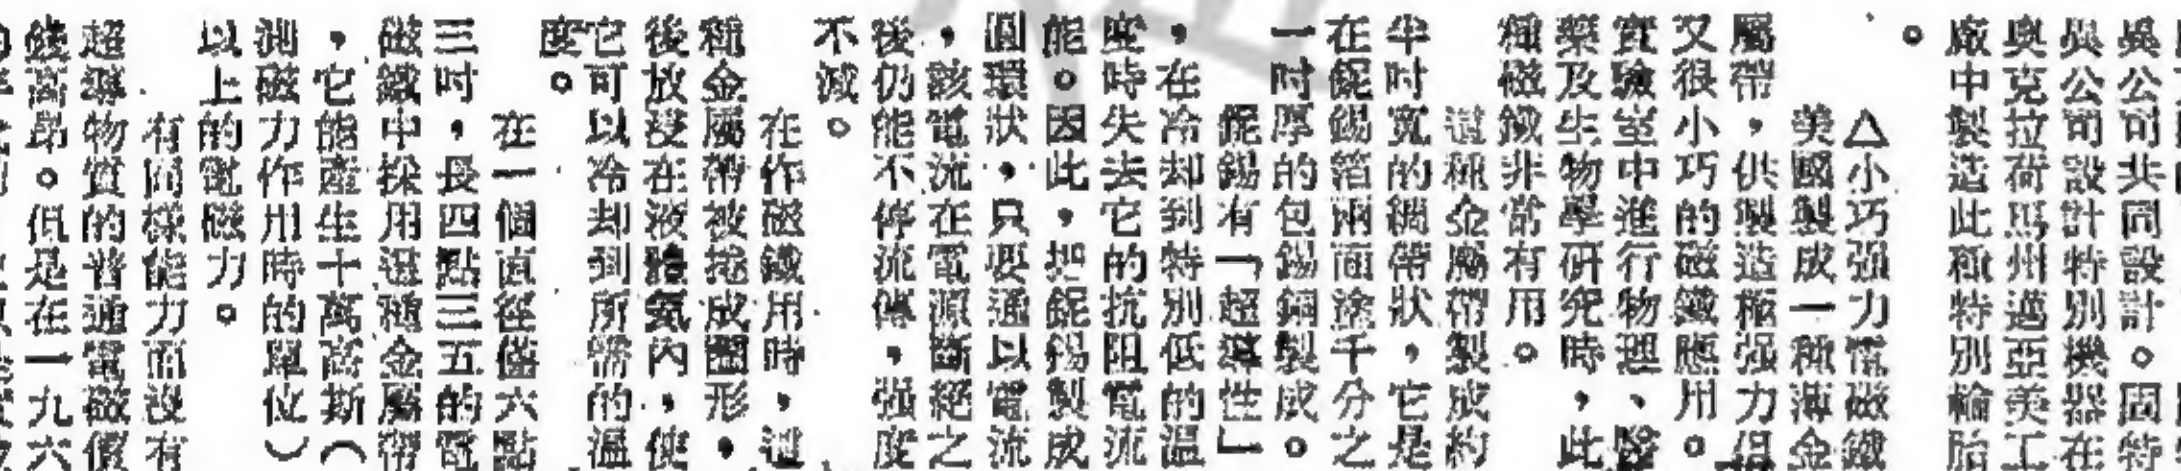 吳公司共同設計。固特
與公司設計特別機器在
奧克拉荷馬州邁亞美工
廠中製造此種特別輪胎
。
△小巧强力電磁鐵
美國製成一種薄金
屬帶，供製造極强力但
又很小巧的磁鐵應用。
實驗室中進行物理、醫
藥及生物學研究時，此
種磁鐵非常有用。
這種金屬帶製成約
半吋寬的綢帶狀，它是
在鈮錫箔兩面塗千分之
一吋厚的包錫銅製成。
鈮錫有「超導性」
，在冷却到特別低的溫
度時失去它的抗阻電流
能。因此，把鈮錫製成
圓環狀，只要通以電流
，該電流在電源斷絕之
後仍能不停流傳，强度
不減。
在作磁鐵用時，這
種金屬帶被捲成圈形，
後放浸在液體氦內，使
它可以冷却到所需的溫
度。
在一個直徑僅六點
三吋，長四點三五的電
磁鐵中採用這種金屬帶
，它能產生十萬高斯（
測磁力作用時的單位）
以上的電磁力。
有同樣能力而沒有
超導物質的普通電磁價
錢高昂。但是在一九六